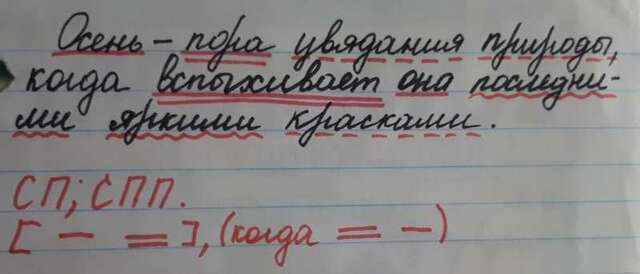 Осень – пора увядания природы,
когда вспыхивает она последни-
ми яркими красками.
СП; СПП.
[ — = ], (когда = — )